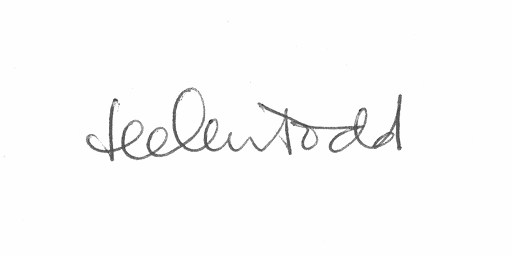 Helen Todd